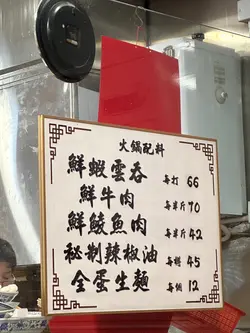 火鍋配料
鮮蝦雲吞 每打 66
鮮牛肉 每半斤 70
鮮鯪魚肉 每半斤 42
秘制辣椒油 每樽 45
全蛋生麵 每個 12